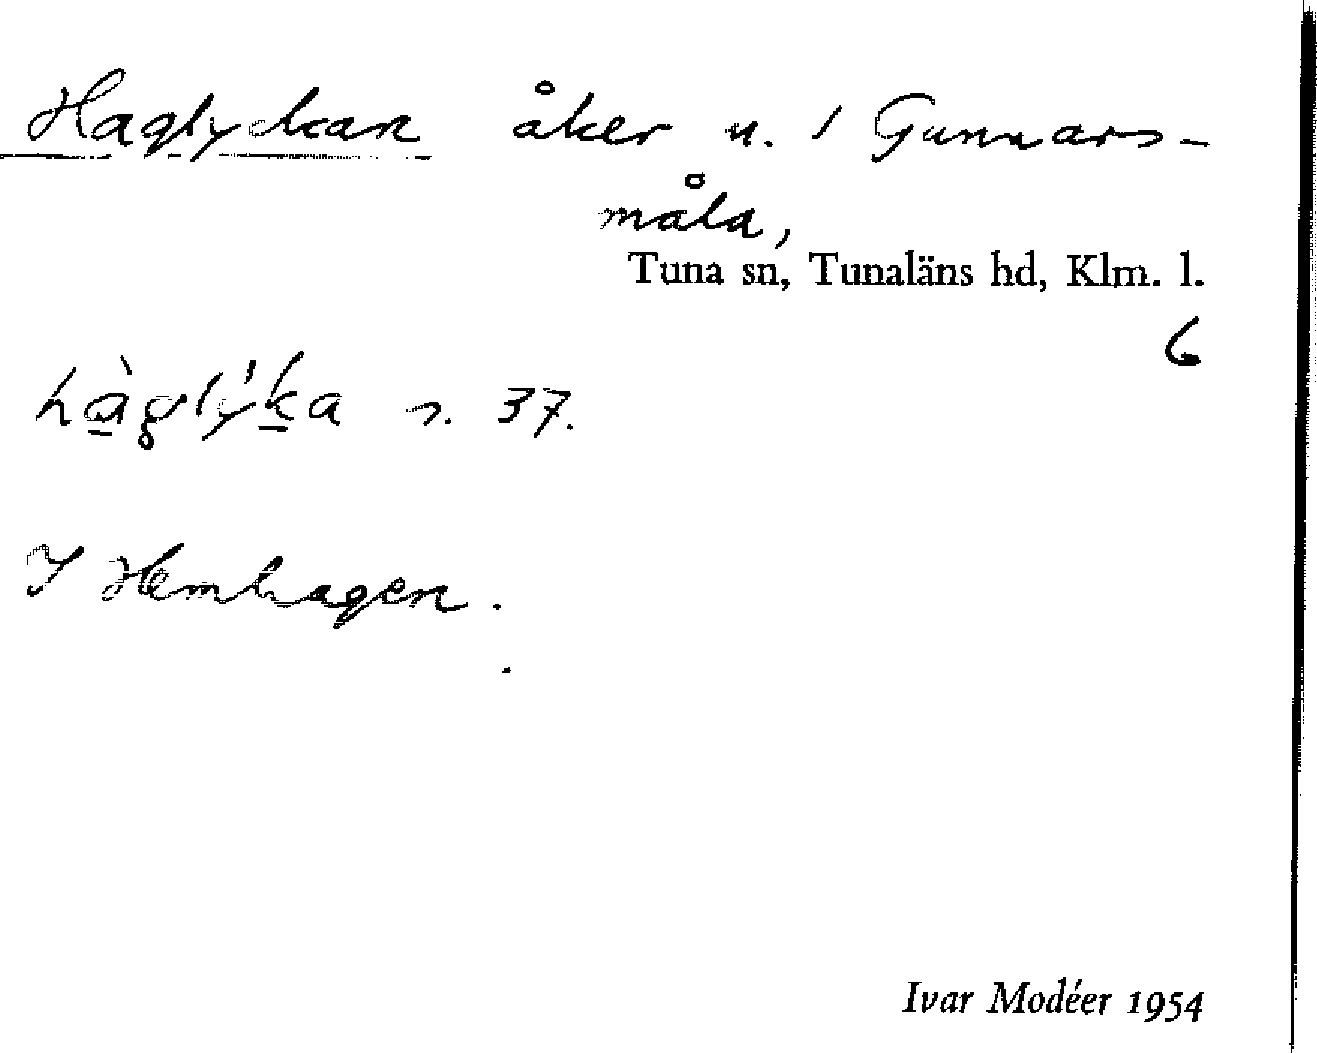 Haglyckan åker n. 1 Gunnars-
måla,
Tuna sn, Tunaläns hd, Klm. l.
6
hàglýka s. 37.
I Hemhagen.
Ivar Modéer 1954